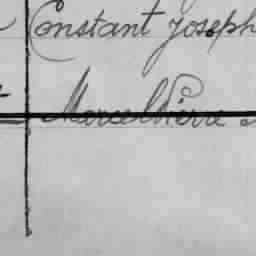 Constant Joseph
Marcel Pierre